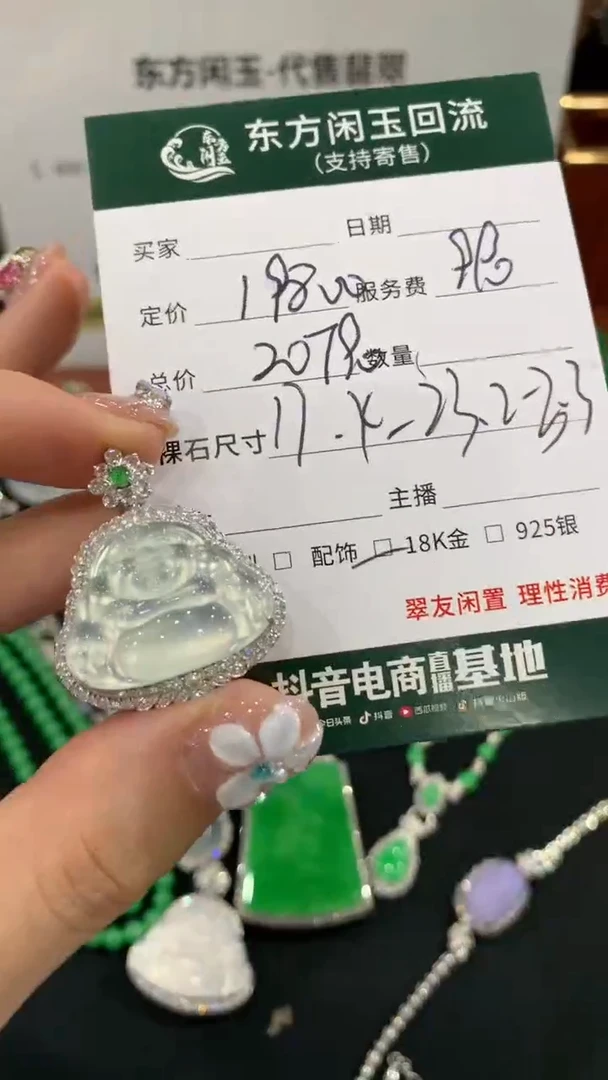 东方闲玉·代售翡翠
东方闲玉回流
(支持寄售)
买家 日期
定价 19800 服务费 990
总价 20790 数量
裸石尺寸
主播
配饰 18K金 925银
翠友闲置 理性消费
抖音电商直播基地
今日头条 抖音 西瓜视频 抖音火山版